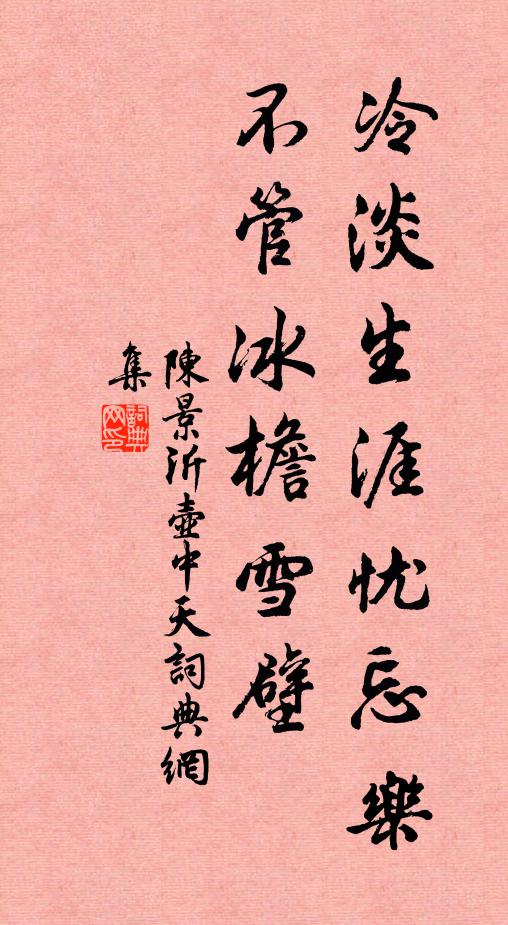 冷淡生涯忧忘樂
不管冰檐雪壁
陳景沂壷中天詞典網
集
詞典网印